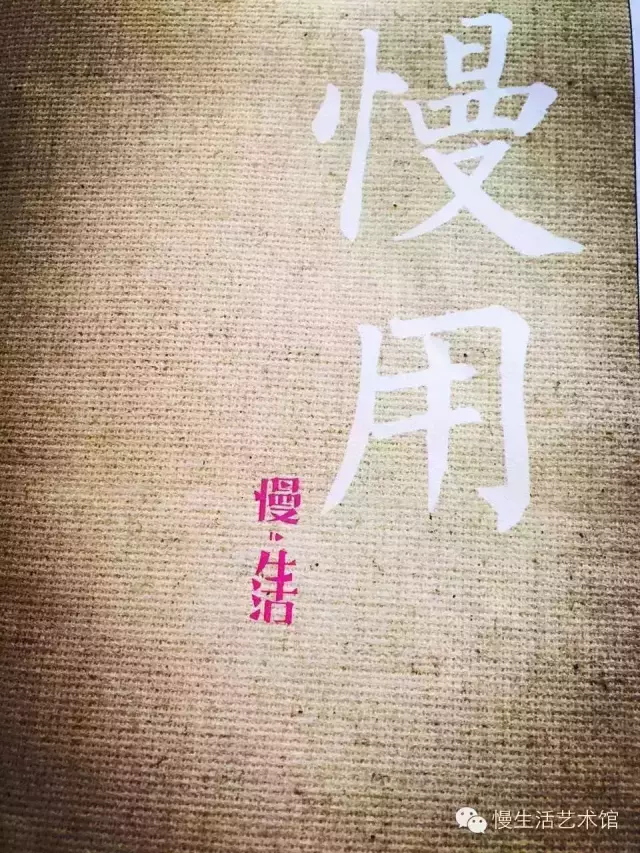 慢用
慢下生活
慢生活艺术馆